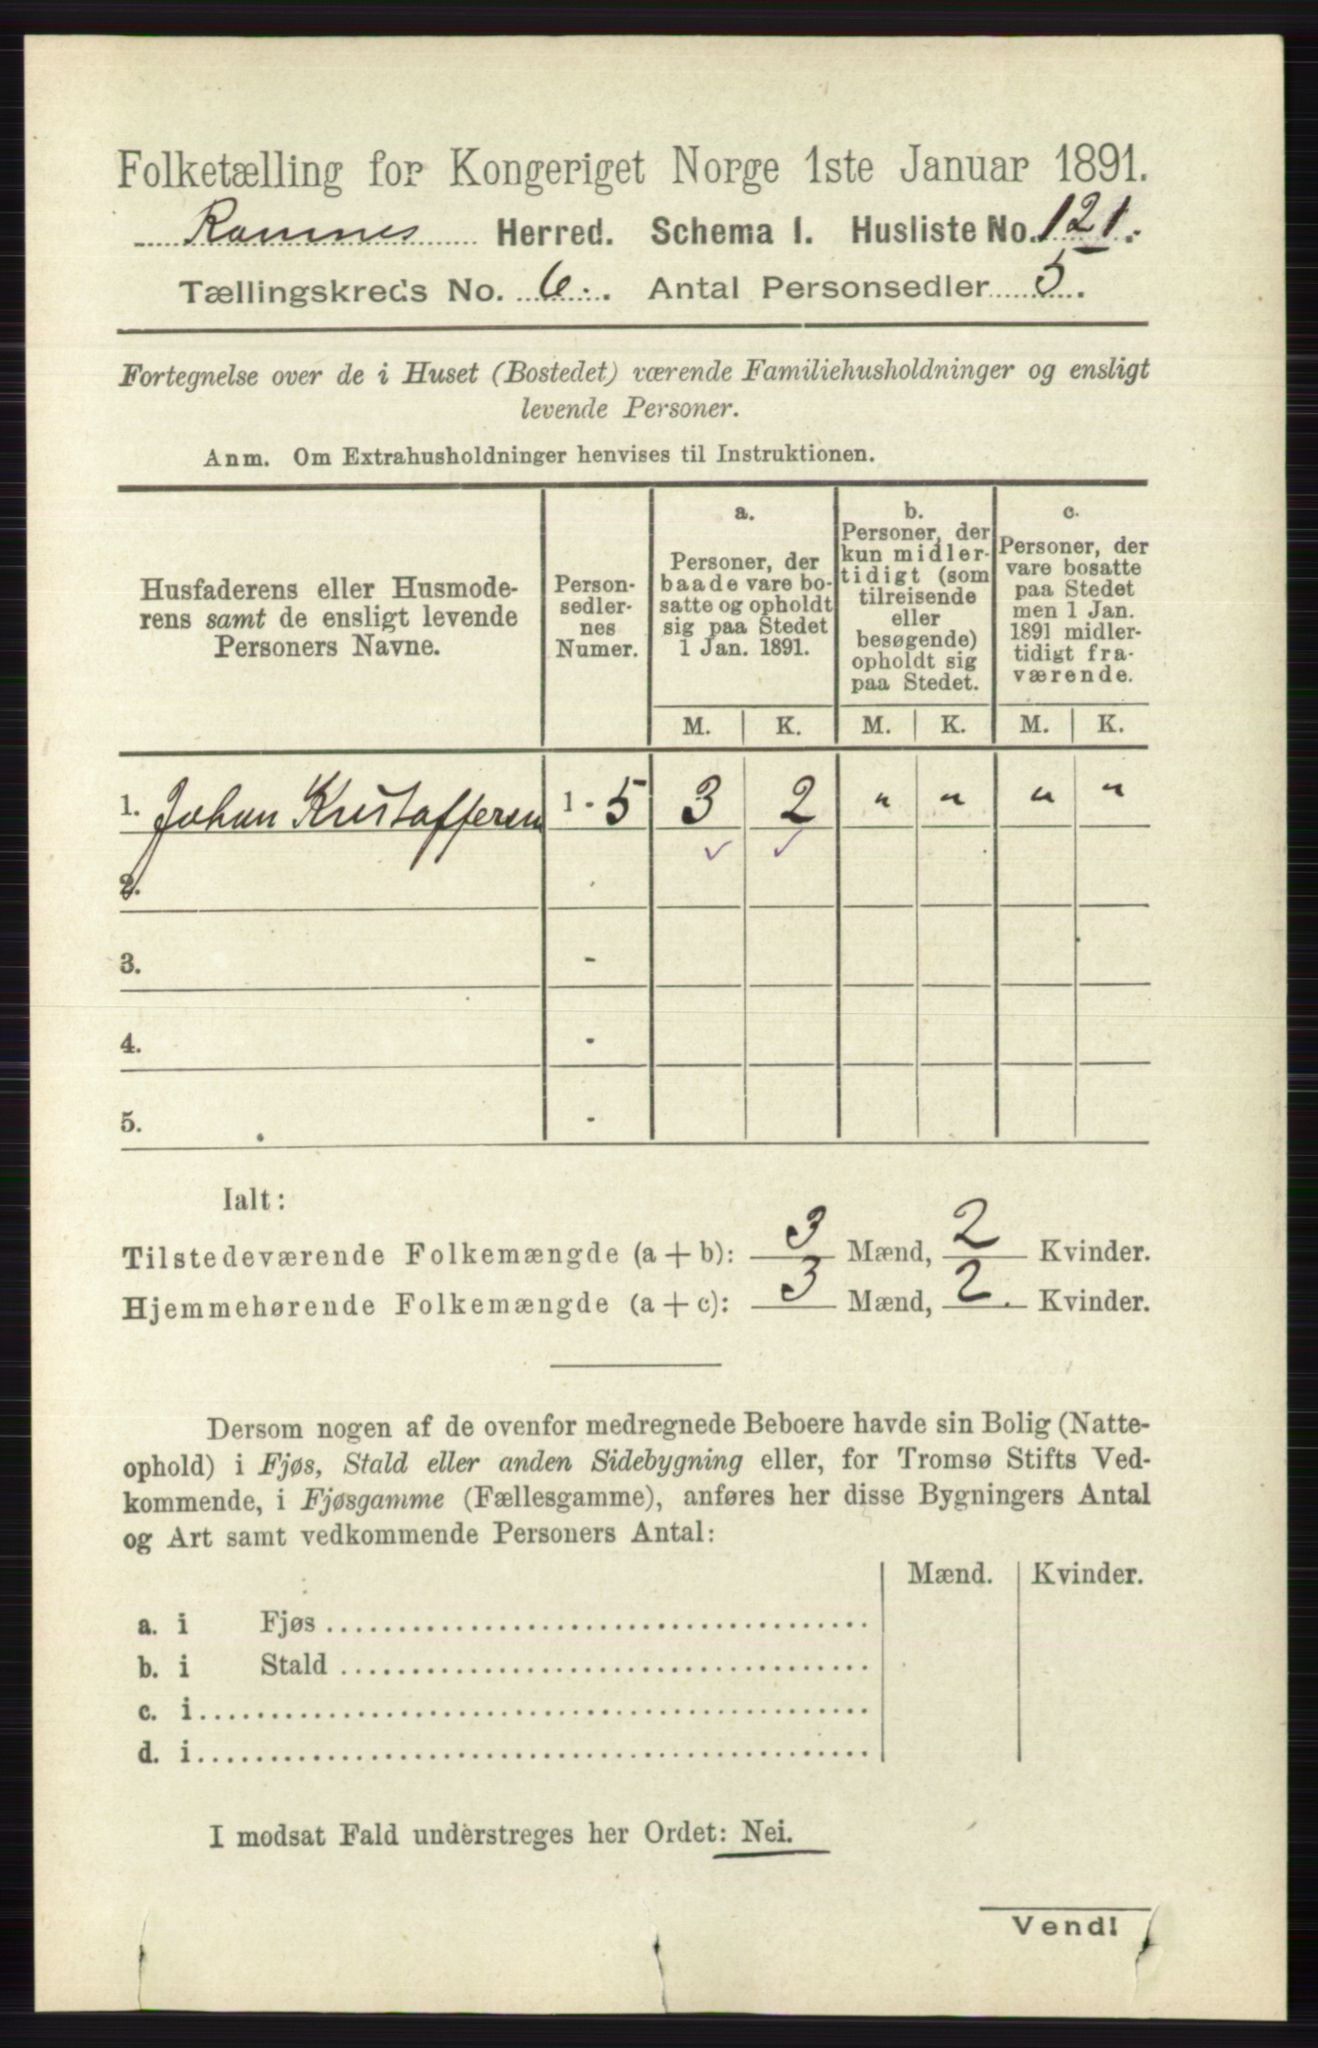 Folketælling for Kongeriget Norge 1ste Januar 1891.
Ramnes Herred. Schema I. Husliste No. 121.
Tællingskreds No. 6. Antal Personsedler 5.
Fortegnelse over de i Huset (Bostedet) værende Familiehusholdninger og ensligt
levende Personer.
Anm. Om Extrahusholdninger henvises til Instruktionen.
Husfaderens eller Husmode-
rens samt de ensligt levende
Personers Navne.
Person-
sedler-
nes
Numer.
a.
Personer, der
baade vare bo-
satte og opholdt
sig paa Stedet
1 Jan. 1891.
b.
Personer, der
kun midler-
tidigt (som
tilreisende
eller
besøgende)
opholdt sig
paa Stedet.
c.
Personer, der
vare bosatte
paa Stedet
men 1 Jan.
1891 midler-
tidigt fra-
værende.
M. K. M. K. M. K.
1. Johan Kristoffersen 1 - 5 3 2 " " " "
2.
3. -
4. -
5. -
Ialt:
Tilstedeværende Folkemængde (a + b): 3 Mænd, 2 Kvinder.
Hjemmehørende Folkemængde (a + c): 3 Mænd, 2. Kvinder.
Dersom nogen af de ovenfor medregnede Beboere havde sin Bolig (Natte-
ophold) i Fjøs, Stald eller anden Sidebygning eller, for Tromsø Stifts Ved-
kommende, i Fjøsgamme (Fællesgamme), anføres her disse Bygningers Antal
og Art samt vedkommende Personers Antal:
Mænd. Kvinder.
a. i Fjøs
b. i Stald
c. i
d. i
I modsat Fald understreges her Ordet: Nei.
Vend!